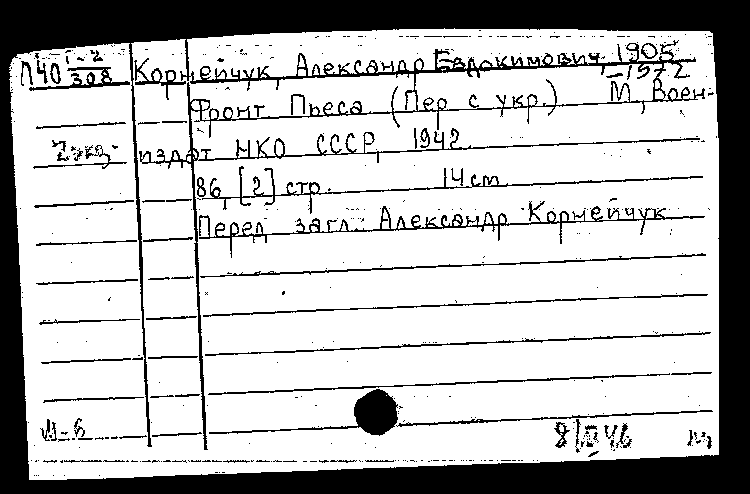 П40 1-2/308 Корнейчук, Александр Евдокимович, 1905
-1972
Фронт Пьеса (Пер с укр.) М., Воен-
2 экз. издат НКО СССР, 1942.
86, [2] стр. 14 cm
Перед загл.: Александр Корнейчук
М-6
8/IV 46